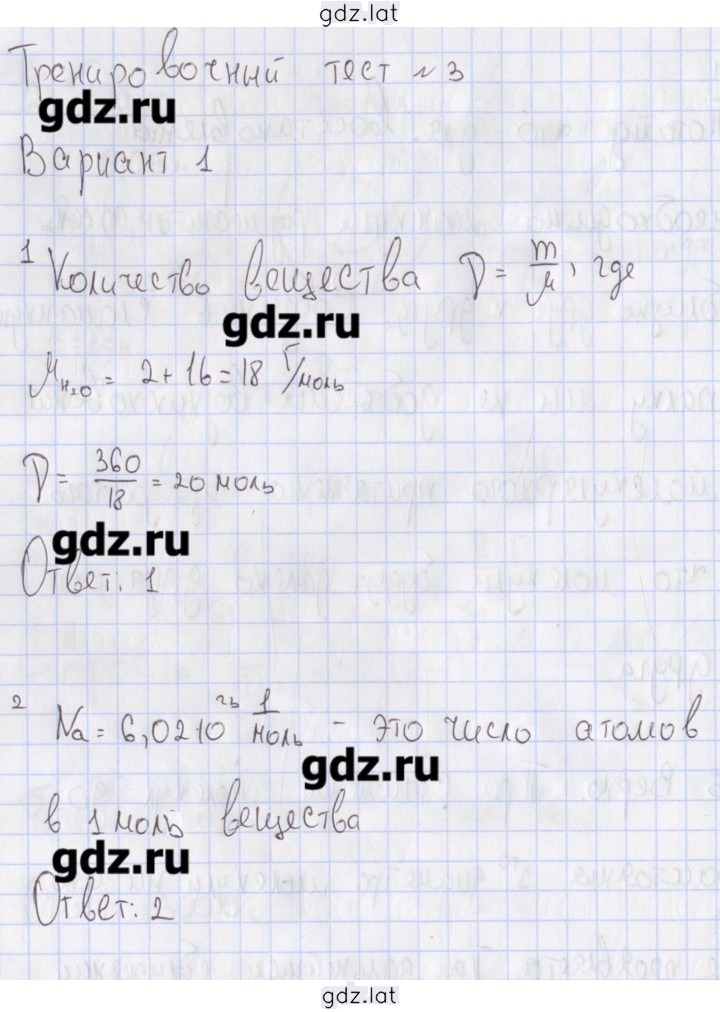 gdz.lat
Тренировочный тест №3
gdz.ru
Вариант 1
1 Количество вещества ν = m/μ, где
gdz.ru
μH₂O = 2+16=18 г/моль
ν = 360/18 = 20 моль
gdz.ru
Ответ: 1
2 Na = 6,0210²³ 1/моль - это число атомов
gdz.ru
в 1 моль вещества
gdz.ru
Ответ: 2
gdz.lat